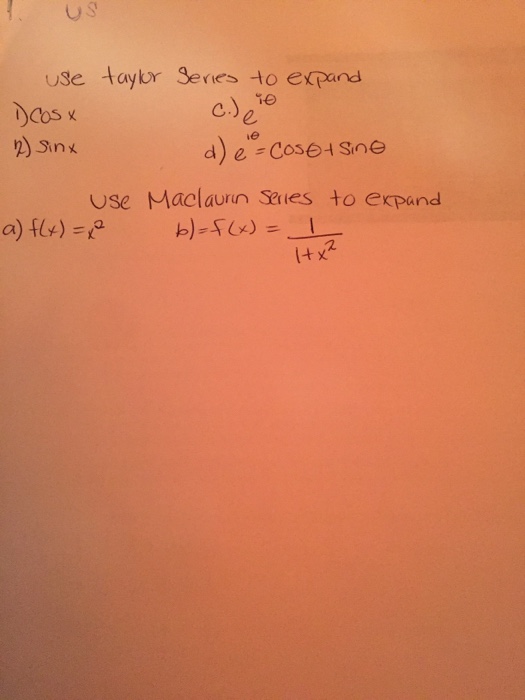 1. US
use taylor Series to expand
1) cos x c.) e^iθ
2) Sinx d) e^iθ = cosθ + sinθ
Use Maclaurin Series to expand
a) f(x) = x² b) = f(x) = 1/(1+x²)